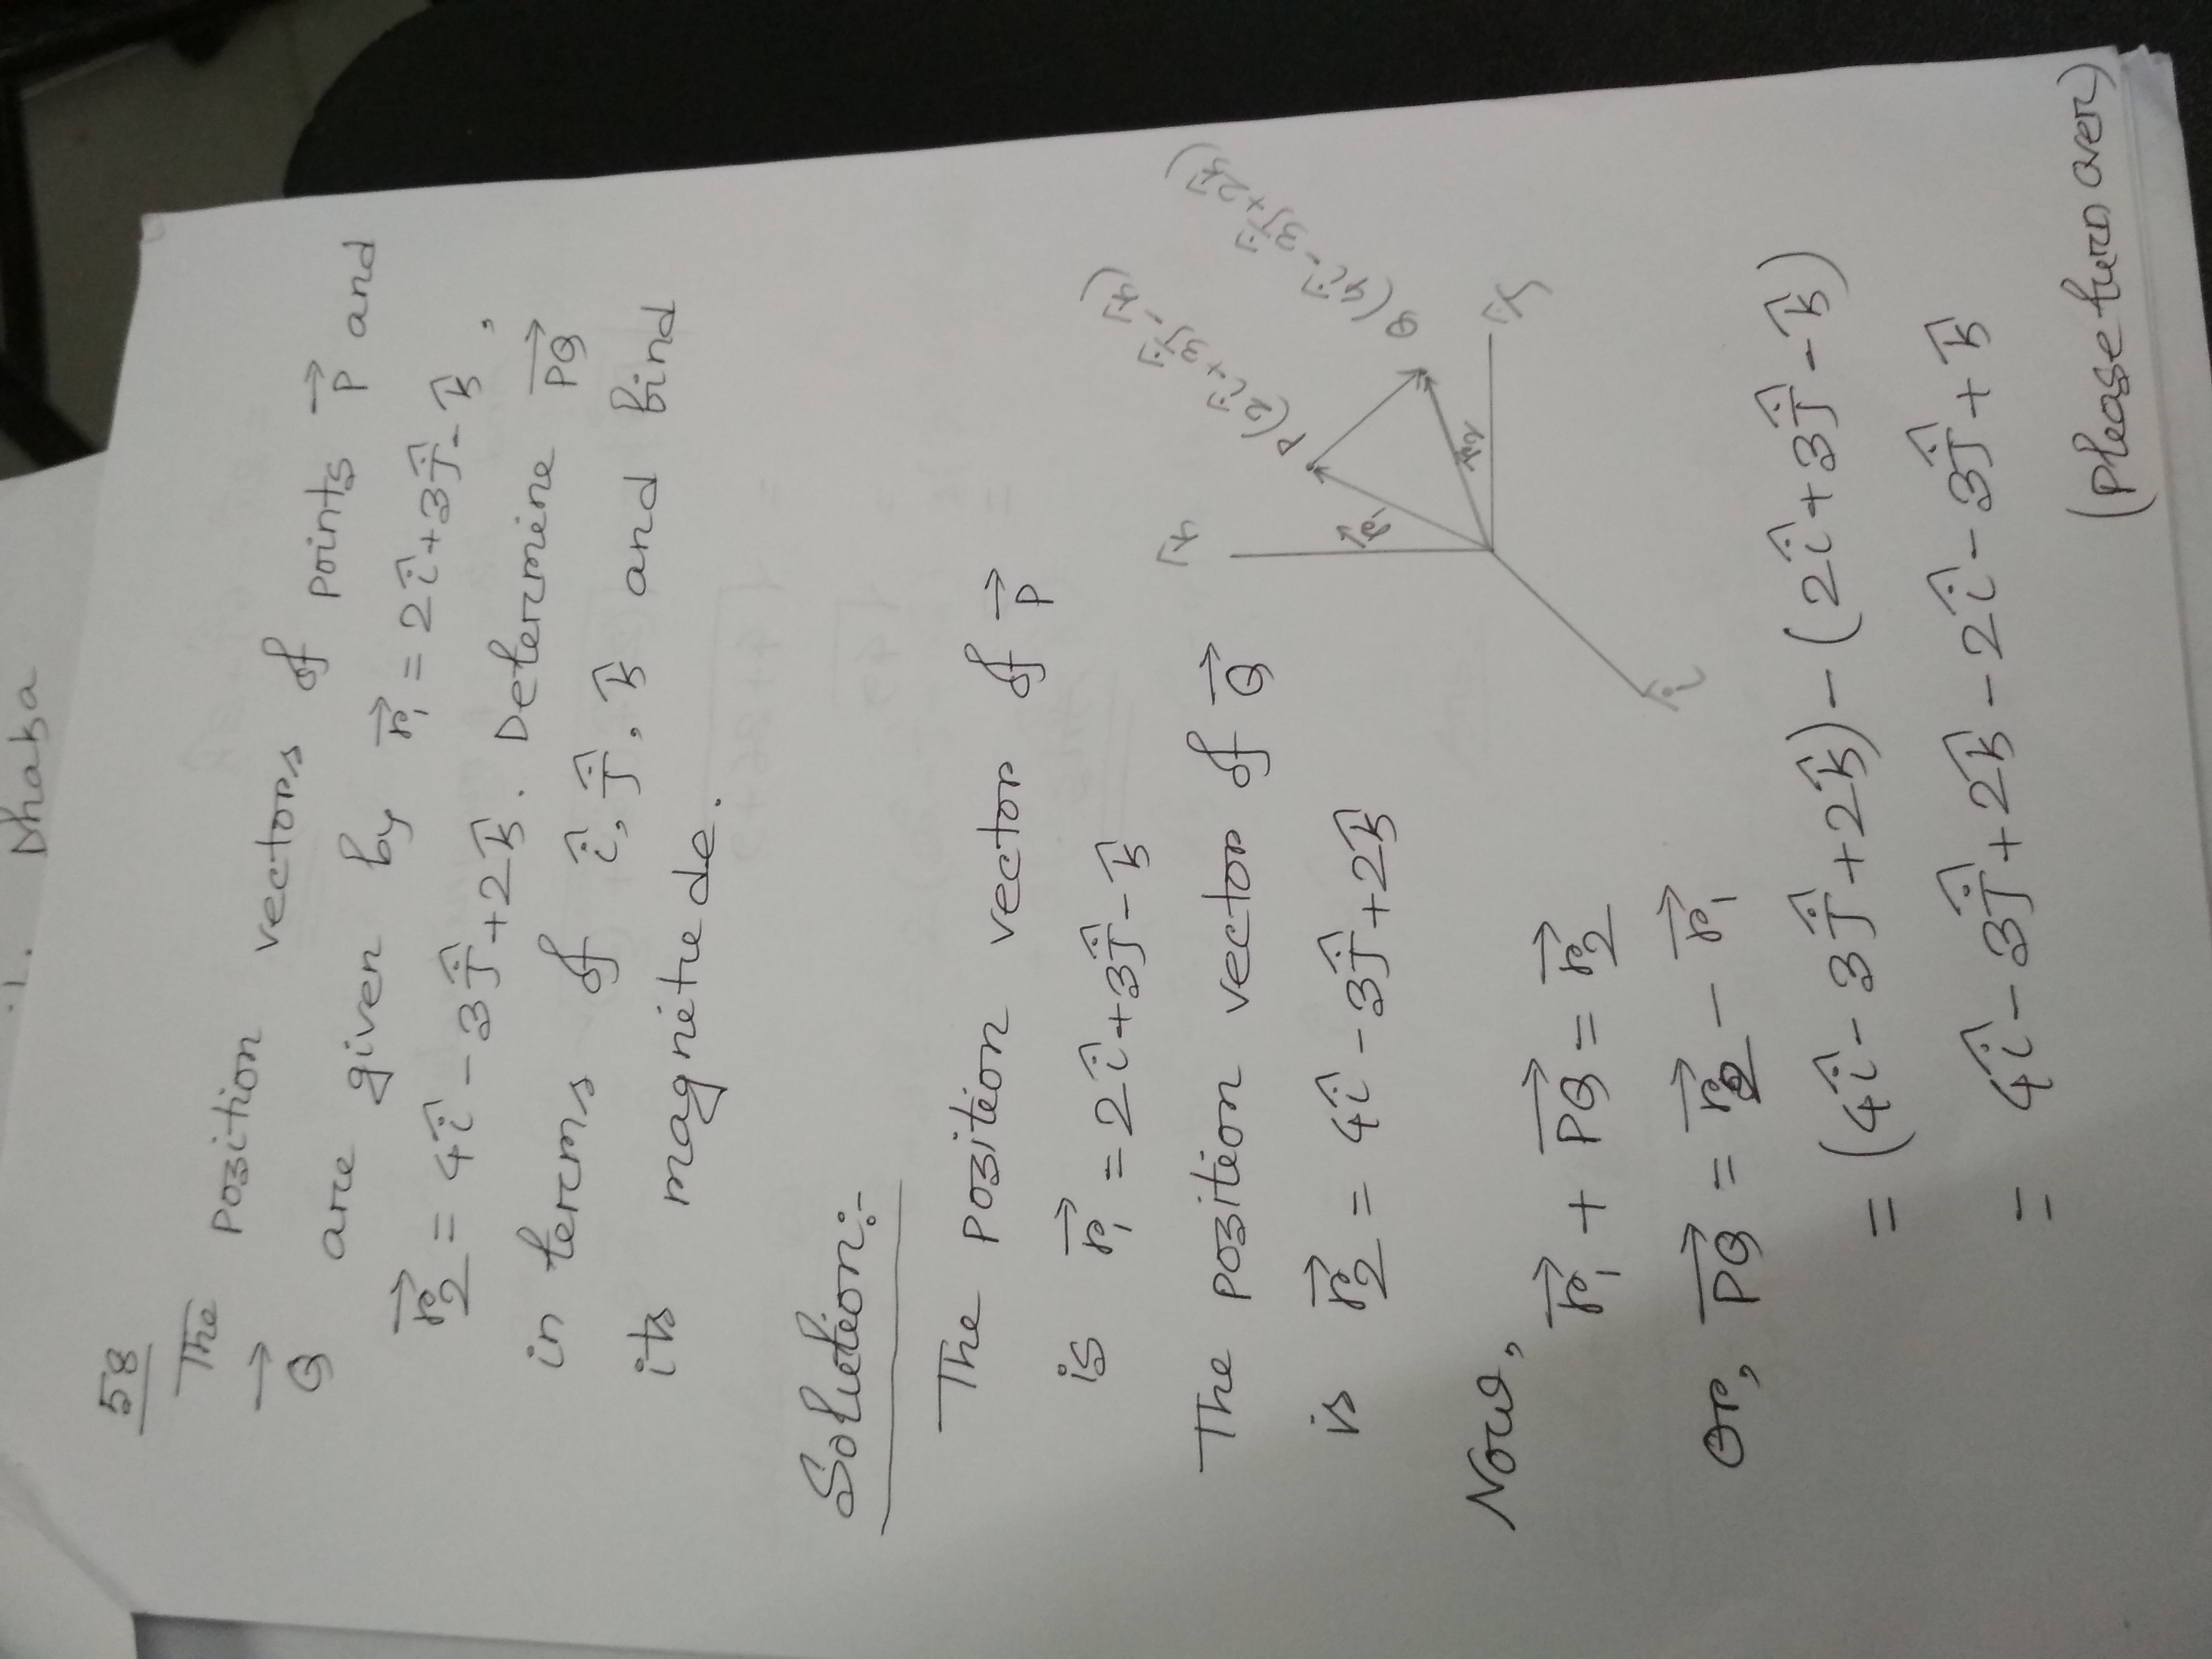 Dhaka
58
The Position vectors of points P⃗ and
Q⃗ are given by r⃗₁ = 2î+3ĵ-k̂,
r⃗₂ = 4î-3ĵ+2k̂. Determine P͞Q⃗
in terms of î, ĵ, k̂ and find
its magnitude.
Solution:-
The position vector of P⃗
is r⃗₁ = 2î+3ĵ-k̂
The position vector of Q⃗
is r⃗₂ = 4î-3ĵ+2k̂
k̂
P(2î+3ĵ-k̂)
Q(4î-3ĵ+2k̂)
r⃗₁
r⃗₂
ĵ
î
Now,
r⃗₁ + PQ⃗ = r⃗₂
Or, PQ⃗ = r⃗₂ - r⃗₁
= (4î-3ĵ+2k̂)-(2î+3ĵ-k̂)
= 4î-3ĵ+2k̂-2î-3ĵ+k̂
(Please turn over)